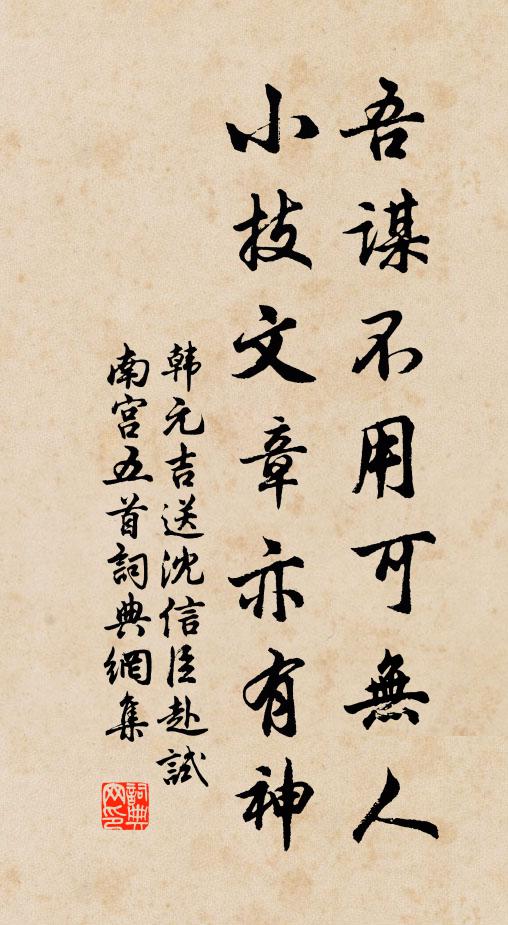 吾謀不用可無人
小技文章亦有神
韩元吉送沈信臣赴試
南宫五首詞典網集
詞典
网印